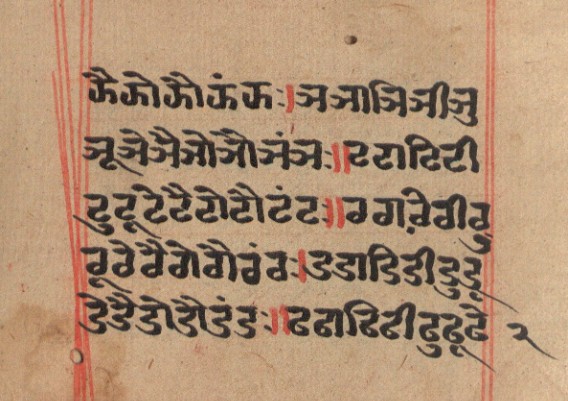 झैझोझौझंझः।ञञाञिञीञु
ञूञेञैञोञौञंञः॥टटाटिटी
टुटूटेटैटोटौटंटः॥ठठाठिठीठु
ठूठेठैठोठौठंठः।डडाडिडीडुडू
डेडैडोडौडंडः॥ढढाढिढीढुढूढे २